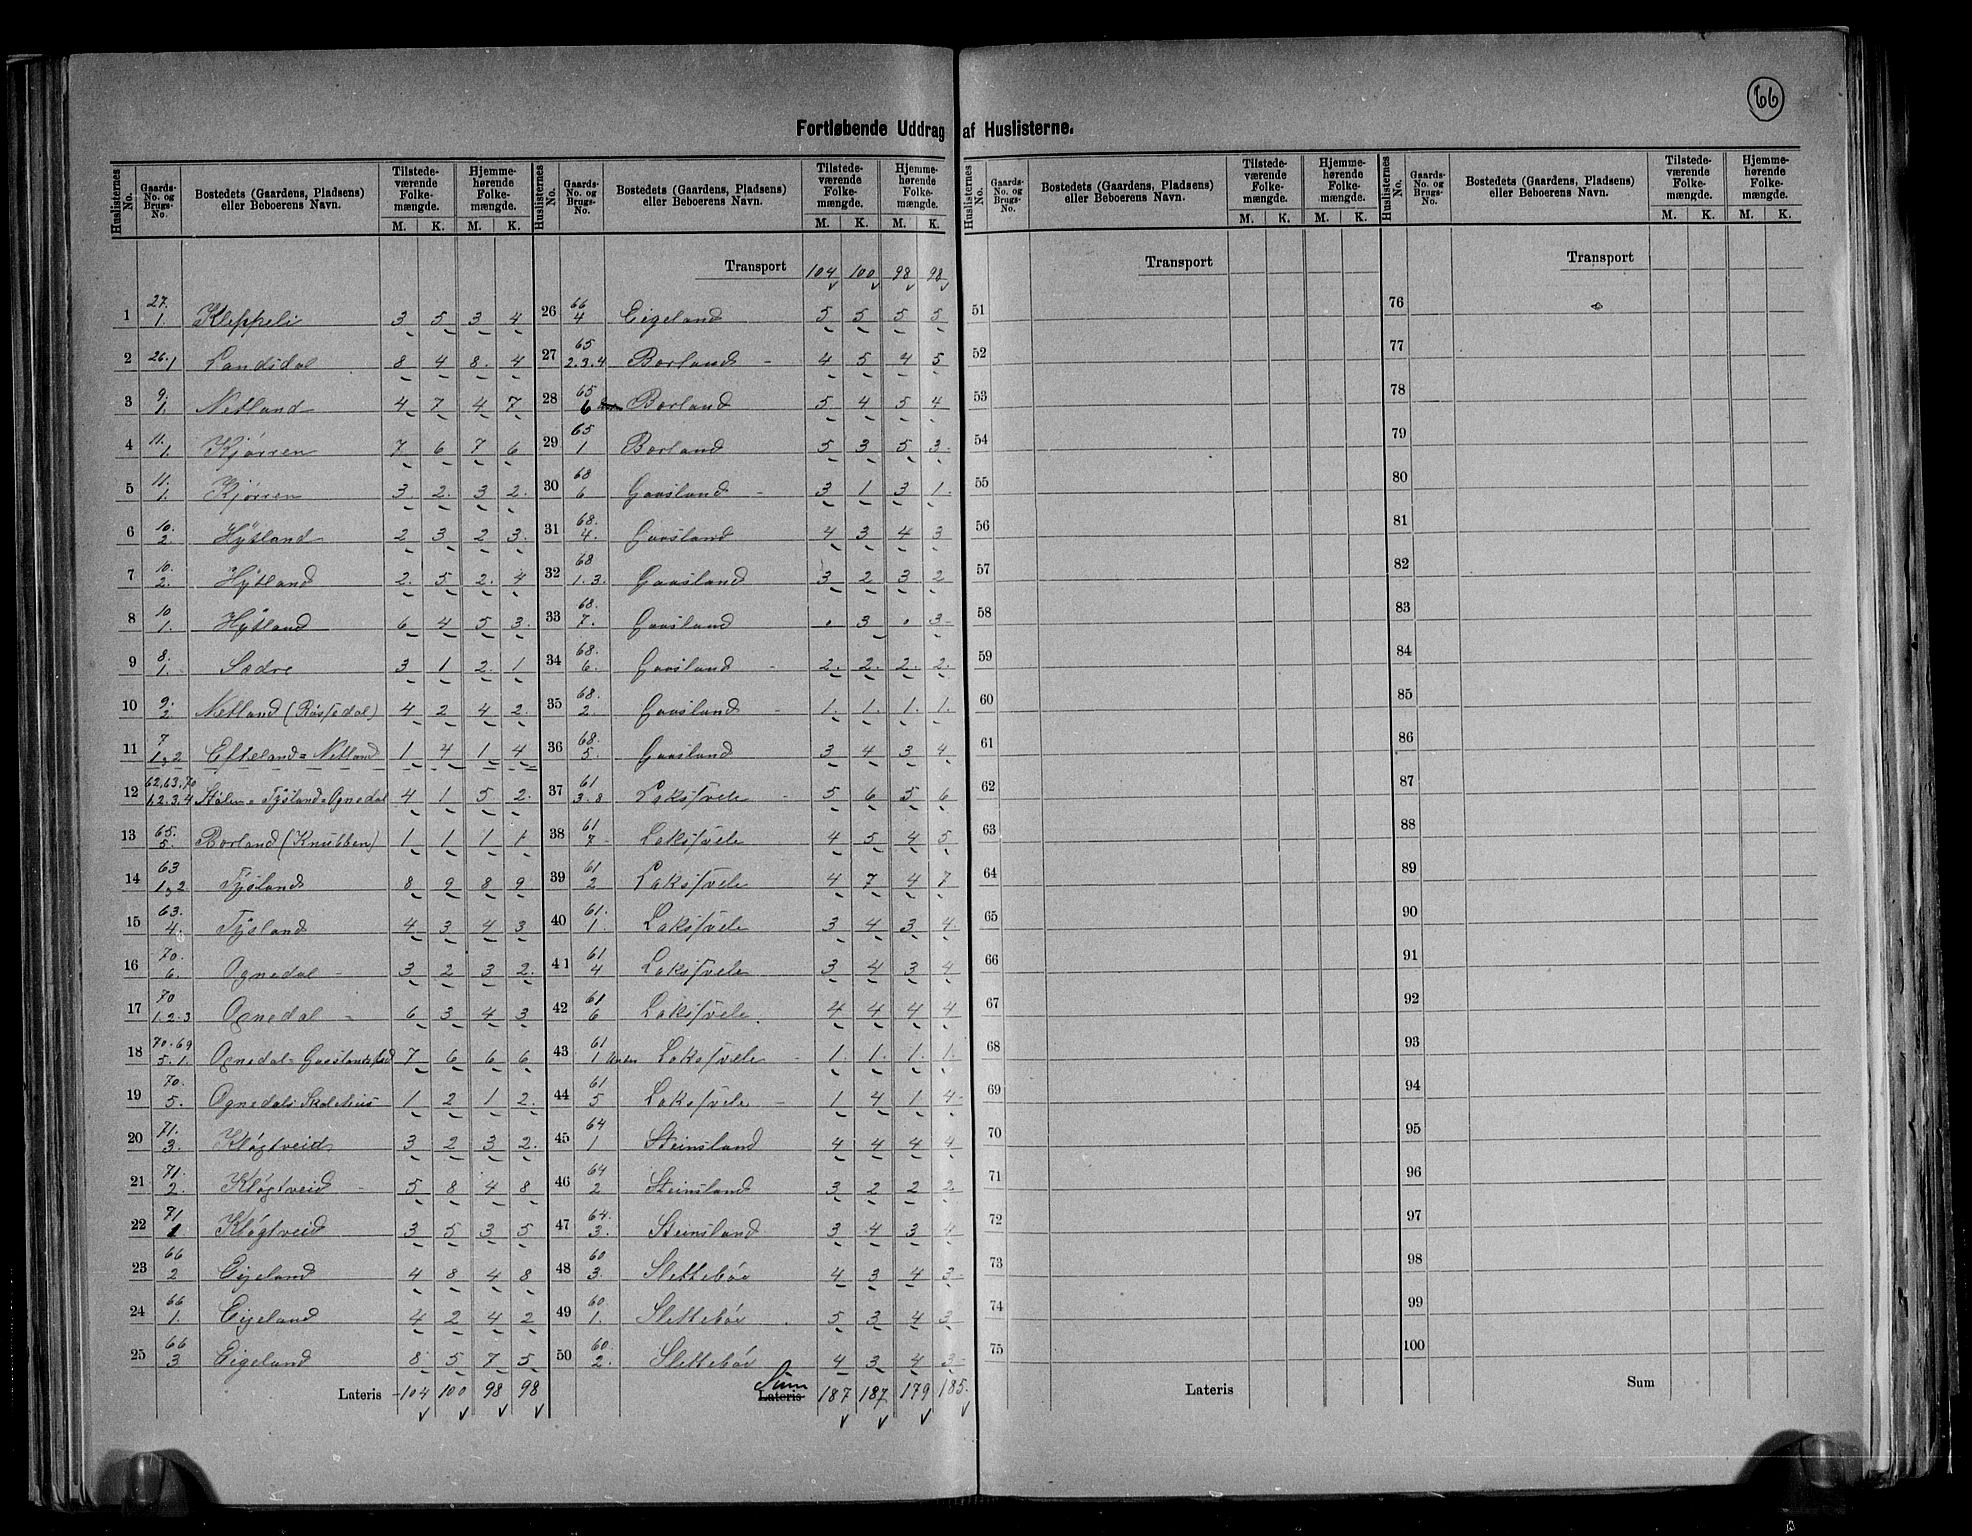 66
Fortløbende Uddrag af Huslisterne.
Huslisternes No. | Gaards-No. og Brugs-No. | Bostedets (Gaardens, Pladsens) eller Beboerens Navn. | Tilstedeværende Folkemængde. M. K. | Hjemmehørende Folkemængde. M. K.
1 | 27. 1. | Kleppeli | 3 | 5 | 3 | 4
2 | 26.1 | Landsdal | 8 | 4 | 8. | 4
3 | 9. 1. | Netland | 4 | 7 | 4 | 7
4 | 11. 1. | Kjörren | 7 | 6 | 7 | 6
5 | 11. 1. | Kjörren | 3. | 2. | 3 | 2.
6 | 10. 2. | Hÿtland | 2 | 3 | 2 | 3.
7 | 10. 2. | Hÿtland | 2. | 5 | 2. | 4
8 | 10 1. | Hÿtland | 6 | 4 | 5 | 3.
9 | 8. 1. | Sædre | 3 | 1 | 2. | 1
10 | 9. 2. | Netland (Rössedal) | 4 | 2 | 4 | 2.
11 | 7 1,2 | Efteland = Netland | 1 | 4 | 1 | 4
12 | 62,63,70 1.2.3.4 | Stölen = Tjsland = Ognedal | 4 | 1 | 5 | 2.
13 | 65. 5. | Borland (Knubben) | 1 | 1 | 1 | 1
14 | 63 1,2 | Tjsland | 8 | 9 | 8 | 9
15 | 63. 4. | Tjsland | 4 | 3 | 4 | 3
16 | 70. 6. | Ognedal | 3 | 2 | 3 | 2.
17 | 70 1.2.3 | Ognedal | 6 | 3 | 4 | 3
18 | 70.69 5.1. | Ognedal = | 7 | 6 | 6 | 6
19 | 70. 5. | Ognedals Skolehus | 1 | 2 | 1 | 2.
20 | 71. 3. | Klögtveid | 3 | 2 | 3 | 2.
21 | 71. 2. | Klögtveid | 5 | 8 | 4 | 8
22 | 71 1 | Klögtveid | 3 | 5 | 3 | 5
23 | 66 2 | Eigeland | 4 | 8 | 4 | 8
24 | 66 1. | Eigeland | 4 | 2 | 4 | 2
25 | 66 3 | Eigeland | 8 | 5 | 7 | 5
Lateris | 104 | 100 | 98 | 98
Huslisternes No. | Gaards-No. og Brugs-No. | Bostedets (Gaardens, Pladsens) eller Beboerens Navn. | Tilstedeværende Folkemængde. M. K. | Hjemmehørende Folkemængde. M. K.
Transport | 104 | 100 | 98 | 98
26 | 66 4 | Eigeland | 5 | 5 | 5 | 5
27 | 65 2.3.4 | Borland | 4 | 5 | 4 | 5
28 | 65 6 | Borland | 5 | 4 | 5 | 4
29 | 65 1 | Borland | 5 | 3 | 5 | 3.
30 | 68 6 | Gaasland | 3 | 1 | 3 | 1.
31 | 68. 4. | Gaasland | 4 | 3 | 4 | 3
32 | 68 1.3. | Gaasland | 3 | 2 | 3 | 2
33 | 68. 7. | Gaasland | . | 3 | . | 3
34 | 68. 6. | Gaasland | 2. | 2. | 2. | 2.
35 | 68. 2. | Gaasland | 1. | 1. | 1. | 1.
36 | 68. 5. | Gaasland | 3 | 4 | 3 | 4
37 | 61 3.8 | Laksesvele | 5 | 6 | 5 | 6
38 | 61 7. | Laksesvele | 4 | 5 | 4 | 5
39 | 61 2 | Laksesvele | 4 | 7 | 4 | 7
40 | 61. 1. | Laksesvele | 3 | 4 | 3 | 4.
41 | 61 4 | Laksesvele | 3 | 4 | 3 | 4
42 | 61 6 | Laksesvele | 4 | 4 | 4 | 4
43 | 61 1 | Laksesvele | 1. | 1. | 1. | 1.
44 | 61 5 | Laksesvele | 1 | 4 | 1 | 4
45 | 64 1 | Steinsland | 4 | 4 | 4 | 4
46 | 64 2 | Steinsland | 3 | 2 | 2 | 2
47 | 64. 3. | Steinsland | 3 | 4 | 3 | 4
48 | 60 3. | Slettebör | 4 | 3 | 4 | 3
49 | 60 1. | Slettebör | 5 | 3 | 4 | 3
50 | 60. 2. | Slettebör | 4 | 3 | 4 | 3
Lateris Sum | 187 | 187 | 179 | 185.
Huslisternes No. | Gaards-No. og Brugs-No. | Bostedets (Gaardens, Pladsens) eller Beboerens Navn. | Tilstedeværende Folkemængde. M. K. | Hjemmehørende Folkemængde. M. K.
Transport
51
52
53
54
55
56
57
58
59
60
61
62
63
64
65
66
67
68
69
70
71
72
73
74
75
Lateris
Huslisternes No. | Gaards-No. og Brugs-No. | Bostedets (Gaardens, Pladsens) eller Beboerens Navn. | Tilstedeværende Folkemængde. M. K. | Hjemmehørende Folkemængde. M. K.
Transport
76
77
78
79
80
81
82
83
84
85
86
87
88
89
90
91
92
93
94
95
96
97
98
99
100
Sum